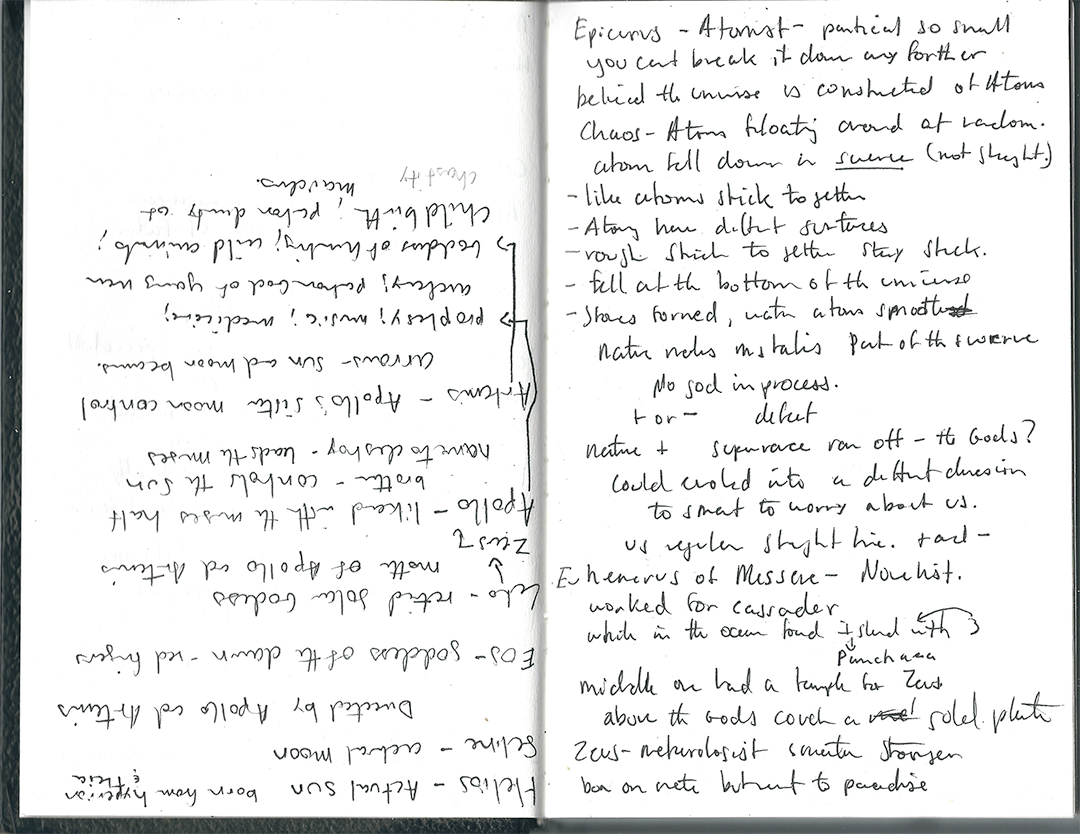 Helios - Actual sun born from hyperion & Theia
Seline - actual moon
Directed by Apollo ad Artemis
EOS - goddess of the dawn - red fingers
Leto - retird solar Godess
Zeus mothe of Apollo ad Artemis
Apollo - likend with the muses half
brother - controls the sun
have to destroy - leads the muses
Artemis - Apollo's sister moon control
arrows - sun ad moon beams.
prophesy; music; medicine;
archery; patron God of young men
Goddess of hunting; wild animals;
Child birth, patron diety of
chastity
Epicurus - Atomist - partical so small
you cant break it down any forther
behied the universe is constructed of Atoms
Chaos - Atoms floatig around at random.
atom fell down in swerve (not streght.)
- like atoms stick to gether
- Atoms have diffent surfaces
- rough stick to gether stay stuck.
- fell at the bottom of the universe
- Stones formed, water atoms smooth
Nature makes mistakes Part of the swerve
No god in process.
+ or - defect
nature + ran off - the Gods?
could evolved into a diffent dimension
to smart to worry about us.
us reguler streght line. + and -
Euhemerus of Messene - Novelist.
worked for cassader
while in the ocean found Island with 3
Panchaea
middle one had a temple for Zeus
above the Gods couch a solid plate
Zeus - stronger
born on crete but went to paradise